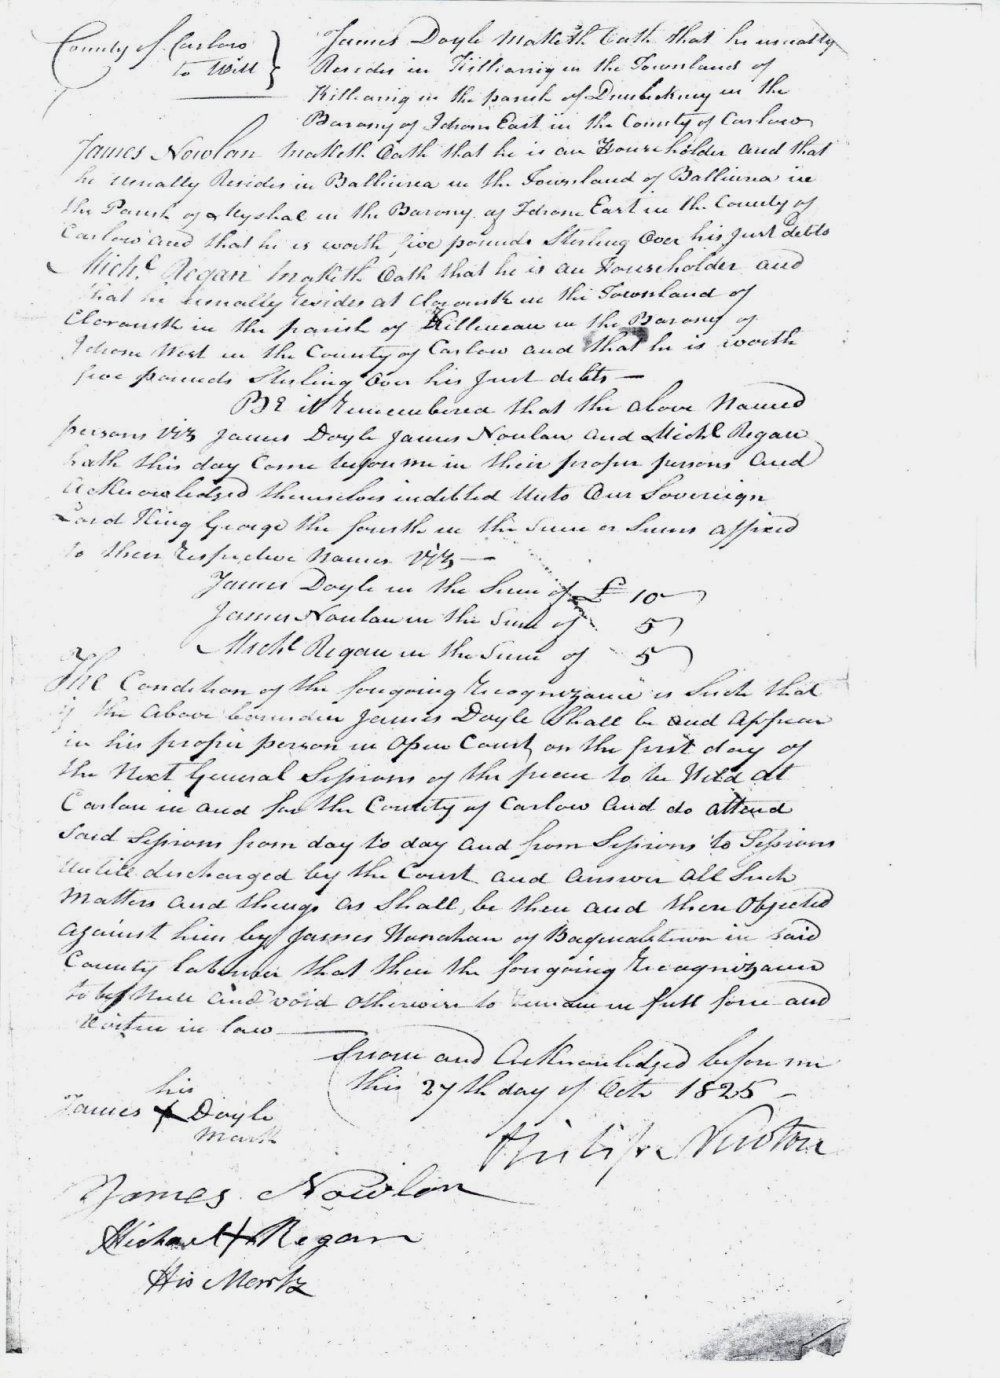 County of Carlow
to Witt
James Doyle Maketh Oath that he usually
Resides in Killianig in the Townland of
Killianig in the parish of Dunleckney in the
Barony of Idrone East in the County of Carlow
James Nowlan Maketh Oath that he is an Householder and that
he usually Resides in Ballinrea in the Townland of Ballinrea in
the Parish of Myshal in the Barony of Idrone East in the County of
Carlow and that he is worth five pounds Sterling Over his Just debts
Michl Regan Maketh Oath that he is an Householder and
that he usually resides at Clorusk in the Townland of
Clorusk in the parish of Killinean in the Barony of
Idrone West in the County of Carlow and that he is worth
five pounds Sterling Over his Just debts —
BE it Remembered that the above Named
persons Viz James Doyle James Nowlan and Michl Regan
hath this day Come before me in their proper persons and
Acknowledged themselves indebted Unto Our Sovereign
Lord King George the fourth in the Sum or Sums affixed
to their Respective Names Viz —
James Doyle in the Sum of £ 10
James Nowlan in the Sum of 5
Michl Regan in the Sum of 5
The Condition of the foregoing Recognizance is Such that
if the Above bounden James Doyle Shall be and Appear
in his proper person in Open Court on the first day of
the Next General Sessions of the peace to be Held At
Carlow in and for the County of Carlow and do attend
Said Sessions from day to day and from Sessions to Sessions
Untill discharged by the Court and answer all Such
Matters and things as Shall be then and there Objected
against him by James Hanahan of Bagnalstown in said
County labourer that then the foregoing Recognizance
to be Null and void otherwise to remain in full force and
Virtue in law
Sworn and Acknowledged before me
this 27th day of Octr 1825
his
James X Doyle
Mark
Philip Newton
James Nowlan
Michael X Regan
His Mark